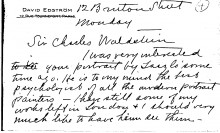 DAVID EDSTROM
12 Bruton Street
Monday
Sir Charles Waldstein
I was very interested
to see your portrait by Laszlo some
time ago. He is to my mind the best
psychologist of all the modern portrait
painters - they still some of my
works left in London & should very
much like to have them see them -